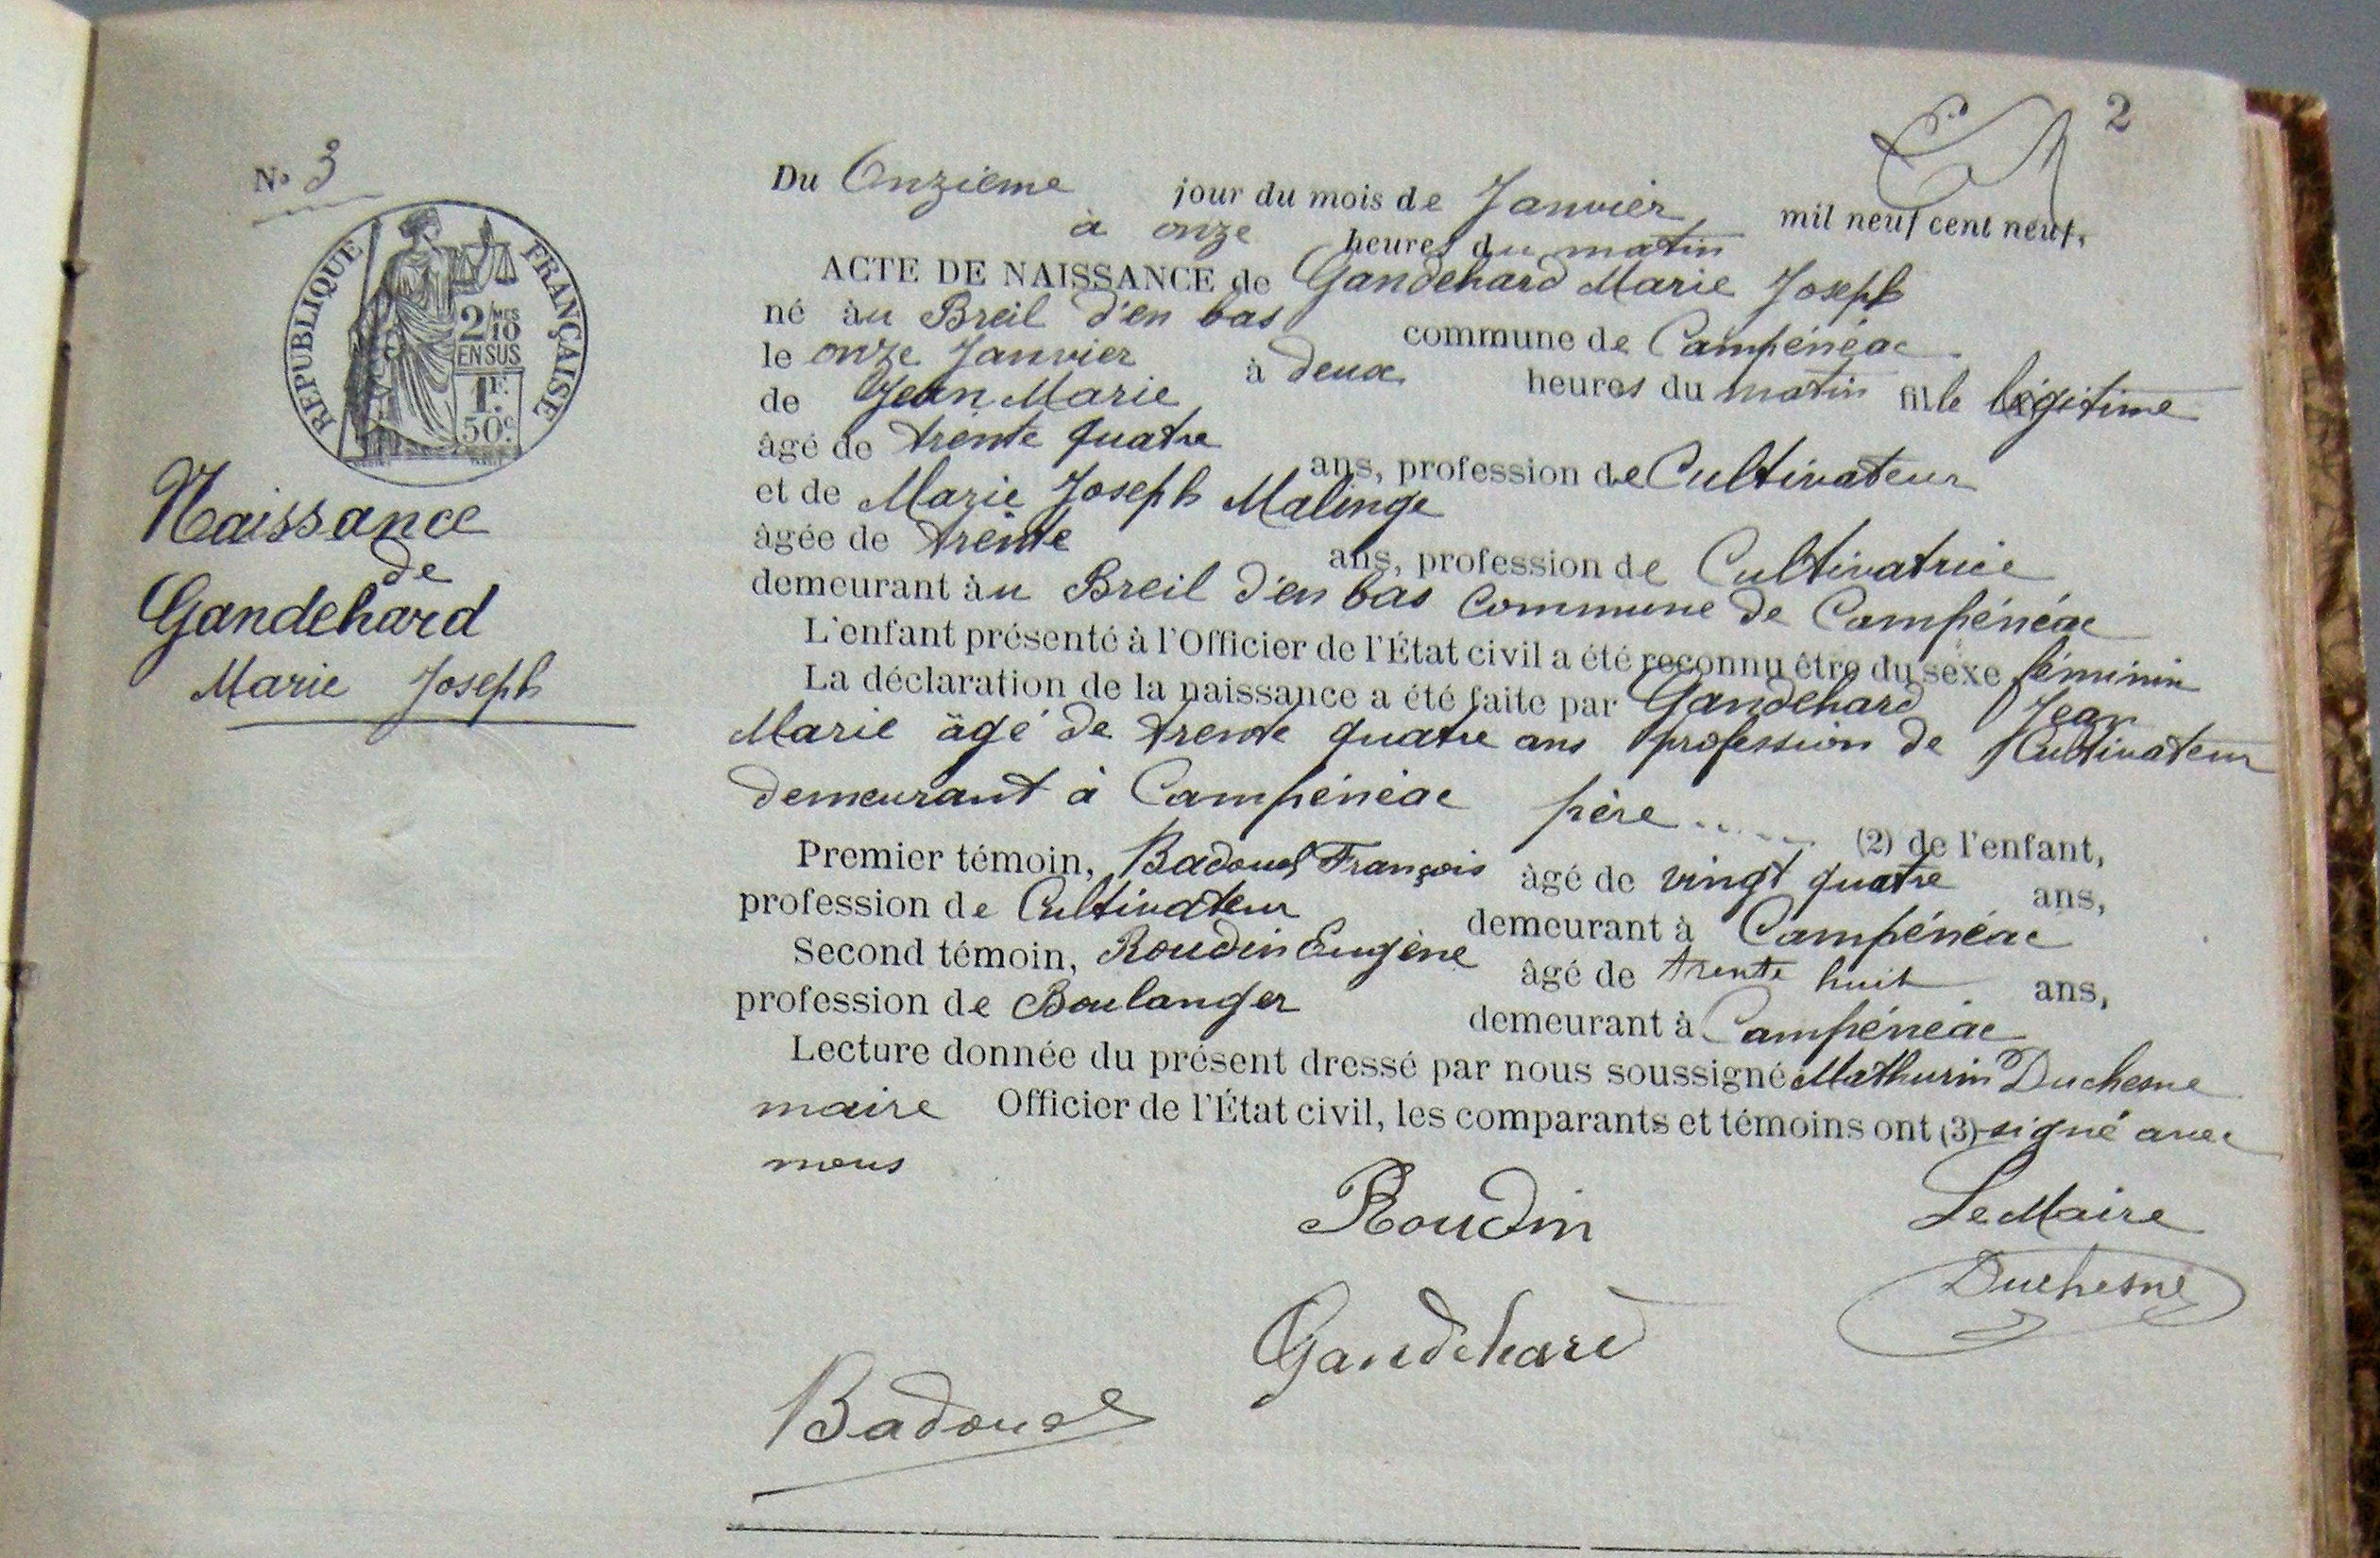 2
N° 3
RÉPUBLIQUE FRANÇAISE
2/10 MES
EN SUS
1F.
50c.
Naissance
de
Gandehard
Marie Joseph
Du Onzième jour du mois de Janvier, mil neuf cent neuf,
à onze heures du matin
ACTE DE NAISSANCE de Gandehard Marie Joseph
né àu Breil d'en bas commune de Campénéac
le onze Janvier à deux heures du matin fille légitime
de Jean Marie
âgé de trente quatre ans, profession de Cultivateur
et de Marie Joseph Malinge
âgée de trente ans, profession de Cultivatrice
demeurant àu Breil d'en bas commune de Campénéac
L'enfant présenté à l'Officier de l'État civil a été reconnu être du sexe féminin
La déclaration de la naissance a été faite par Gandehard Jean
Marie âgé de trente quatre ans profession de Cultivateur
demeurant à Campénéac père (2) de l'enfant,
Premier témoin, Badouel François âgé de vingt quatre ans,
profession de Cultivateur demeurant à Campénéac
Second témoin, Roudin Eugène âgé de trente huit ans,
profession de Boulanger demeurant à Campénéac
Lecture donnée du présent dressé par nous soussigné Mathurin Duchesne
maire Officier de l'État civil, les comparants et témoins ont (3) signé avec
nous
Roudin Le Maire
Duchesne
Gandehard
Badouel